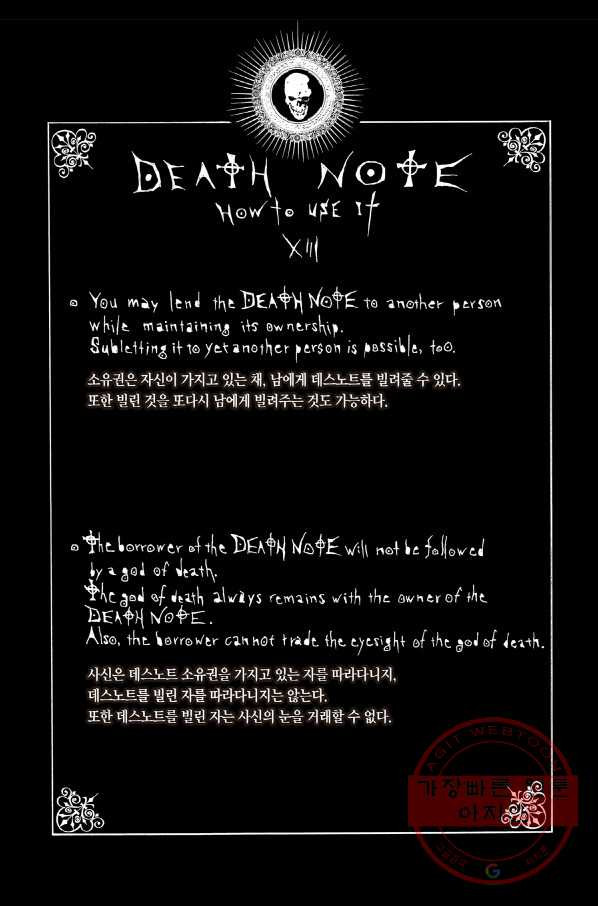 DEATH NOTE
HOW to USE IT
XIII
You may lend the DEATH NOTE to another person
while maintaining its ownership.
Subletting it to yet another person is possible, too.
소유권은 자신이 가지고 있는 채, 남에게 데스노트를 빌려줄 수 있다.
또한 빌린 것을 또다시 남에게 빌려주는 것도 가능하다.
The borrower of the DEATH NOTE will not be followed
by a god of death.
The god of death always remains with the owner of the
DEATH NOTE.
Also, the borrower cannot trade the eyesight of the god of death.
사신은 데스노트 소유권을 가지고 있는 자를 따라다니지,
데스노트를 빌린 자를 따라다니지는 않는다.
또한 데스노트를 빌린 자는 사신의 눈을 거래할 수 없다.
AGIT WEBTOON
가장빠른
G